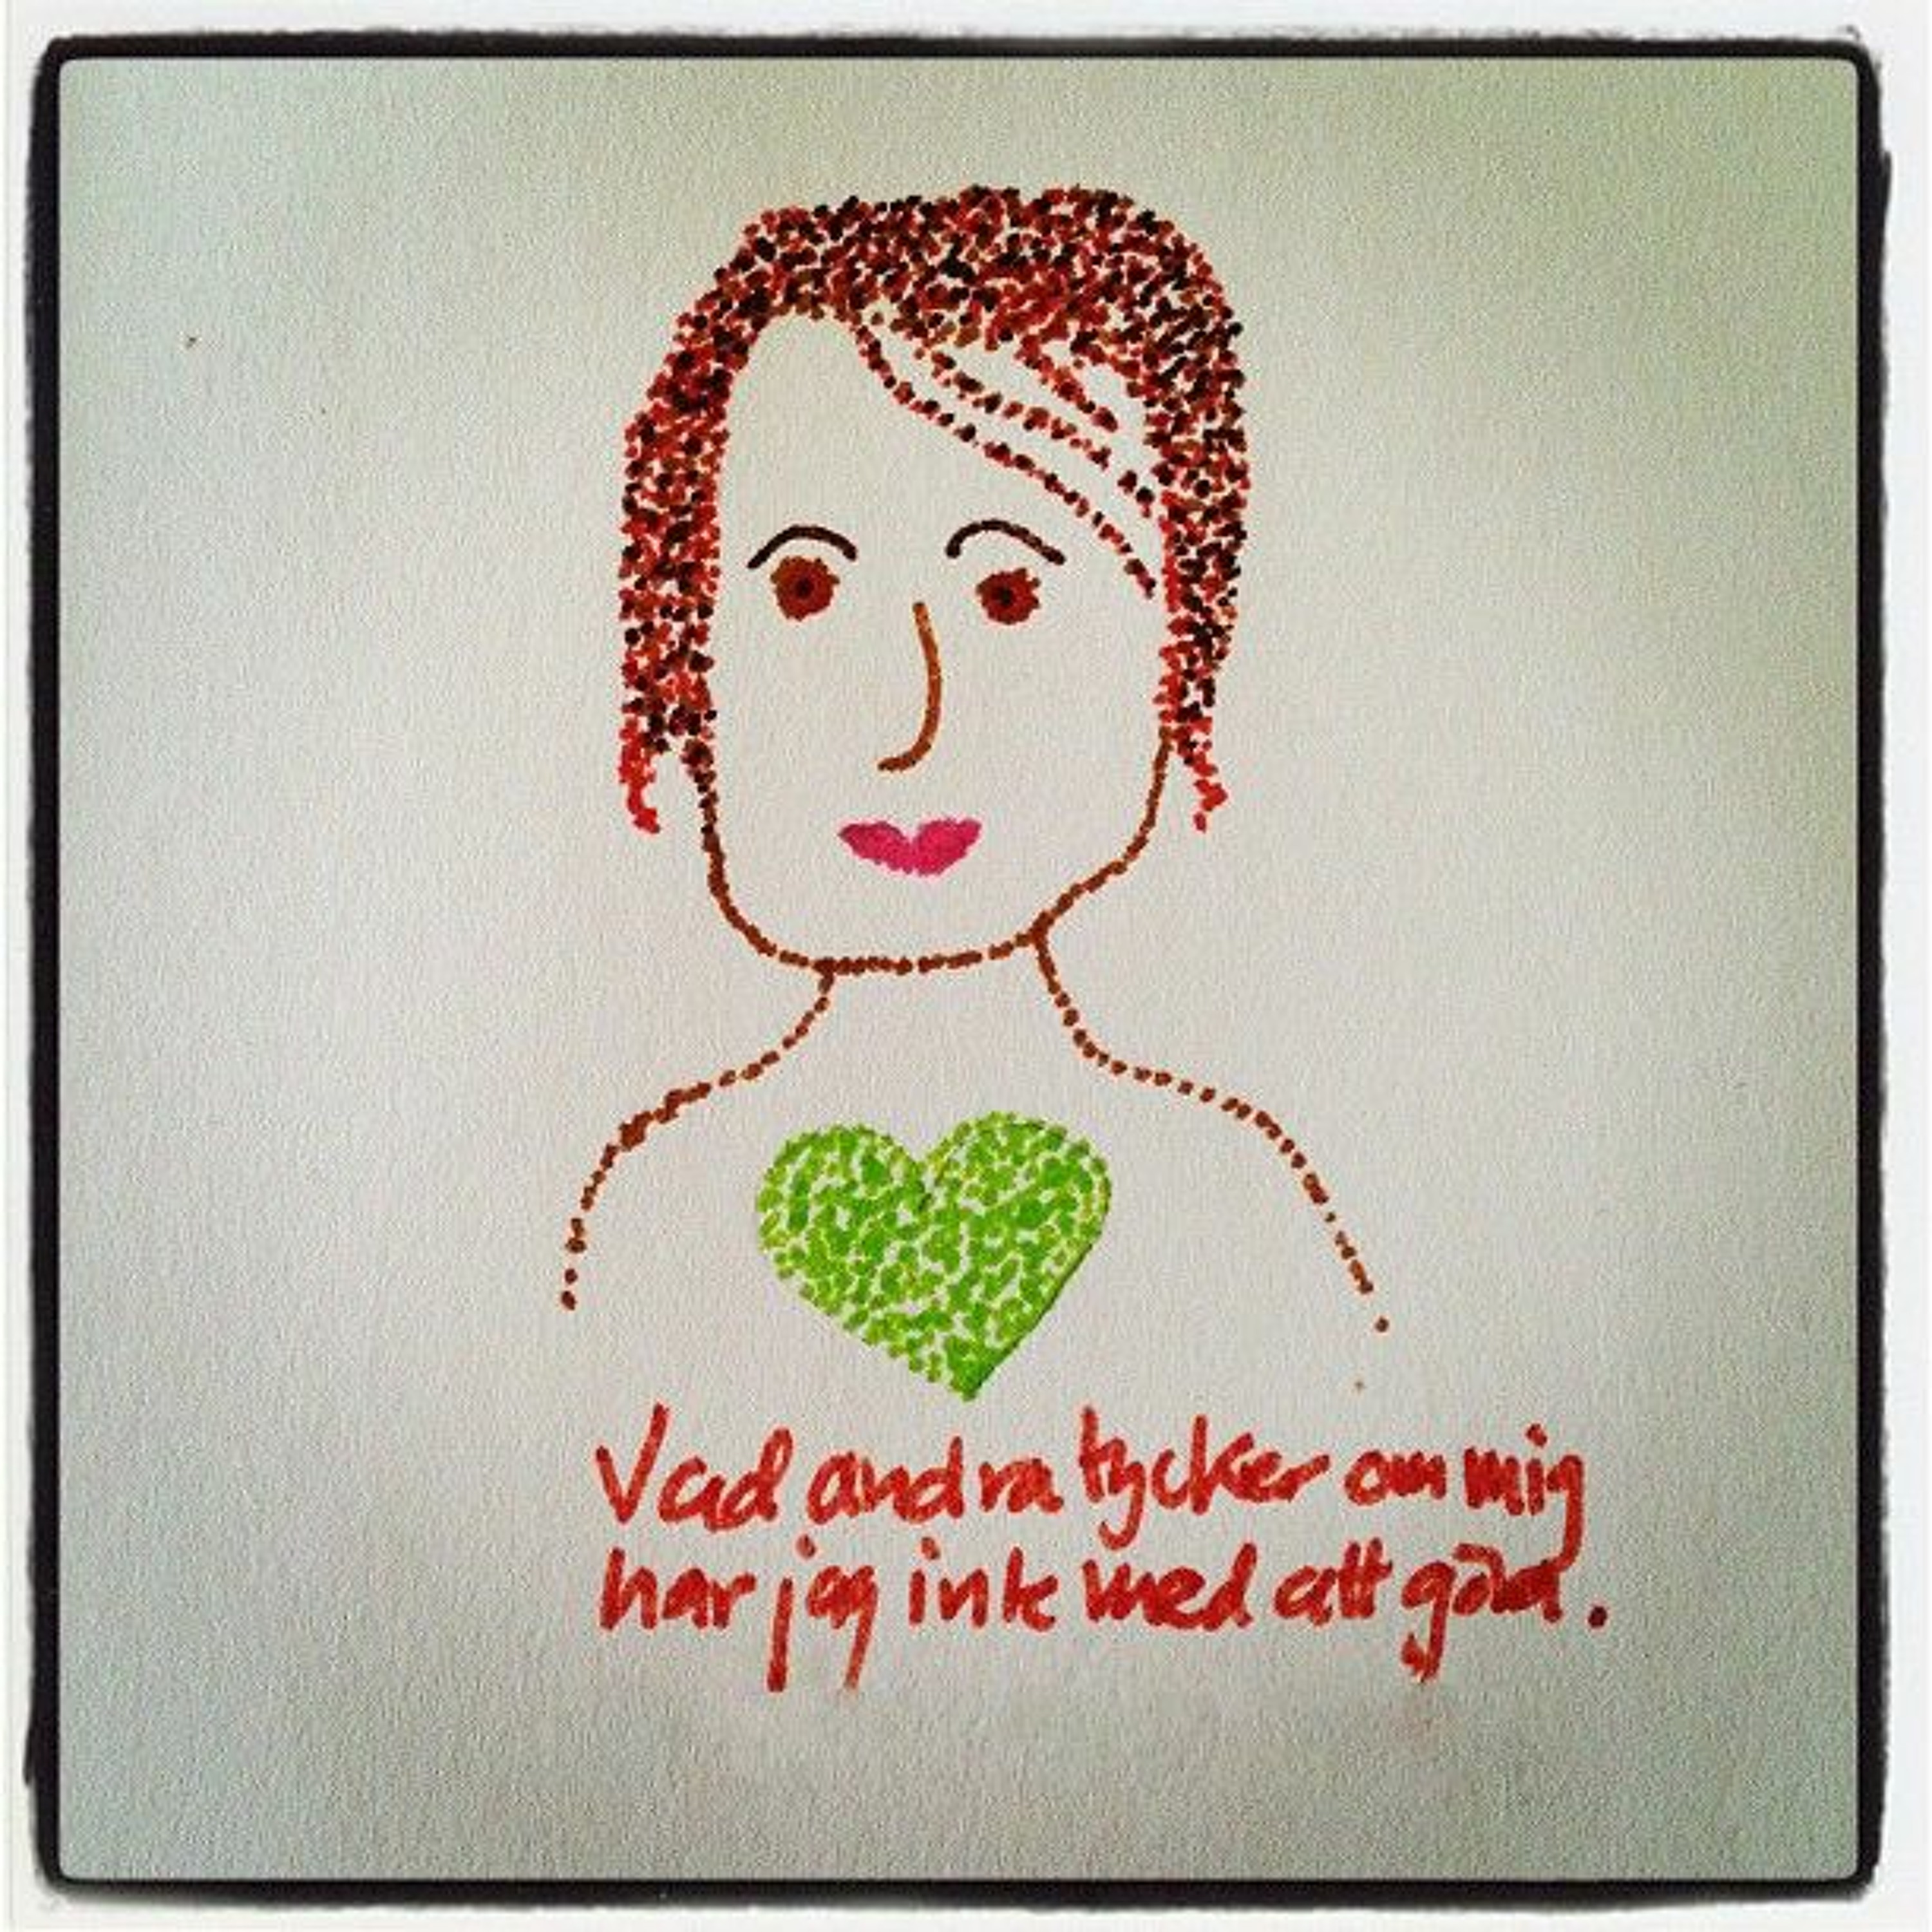 Vad andra tycker om mig
har jag inte med att göra.